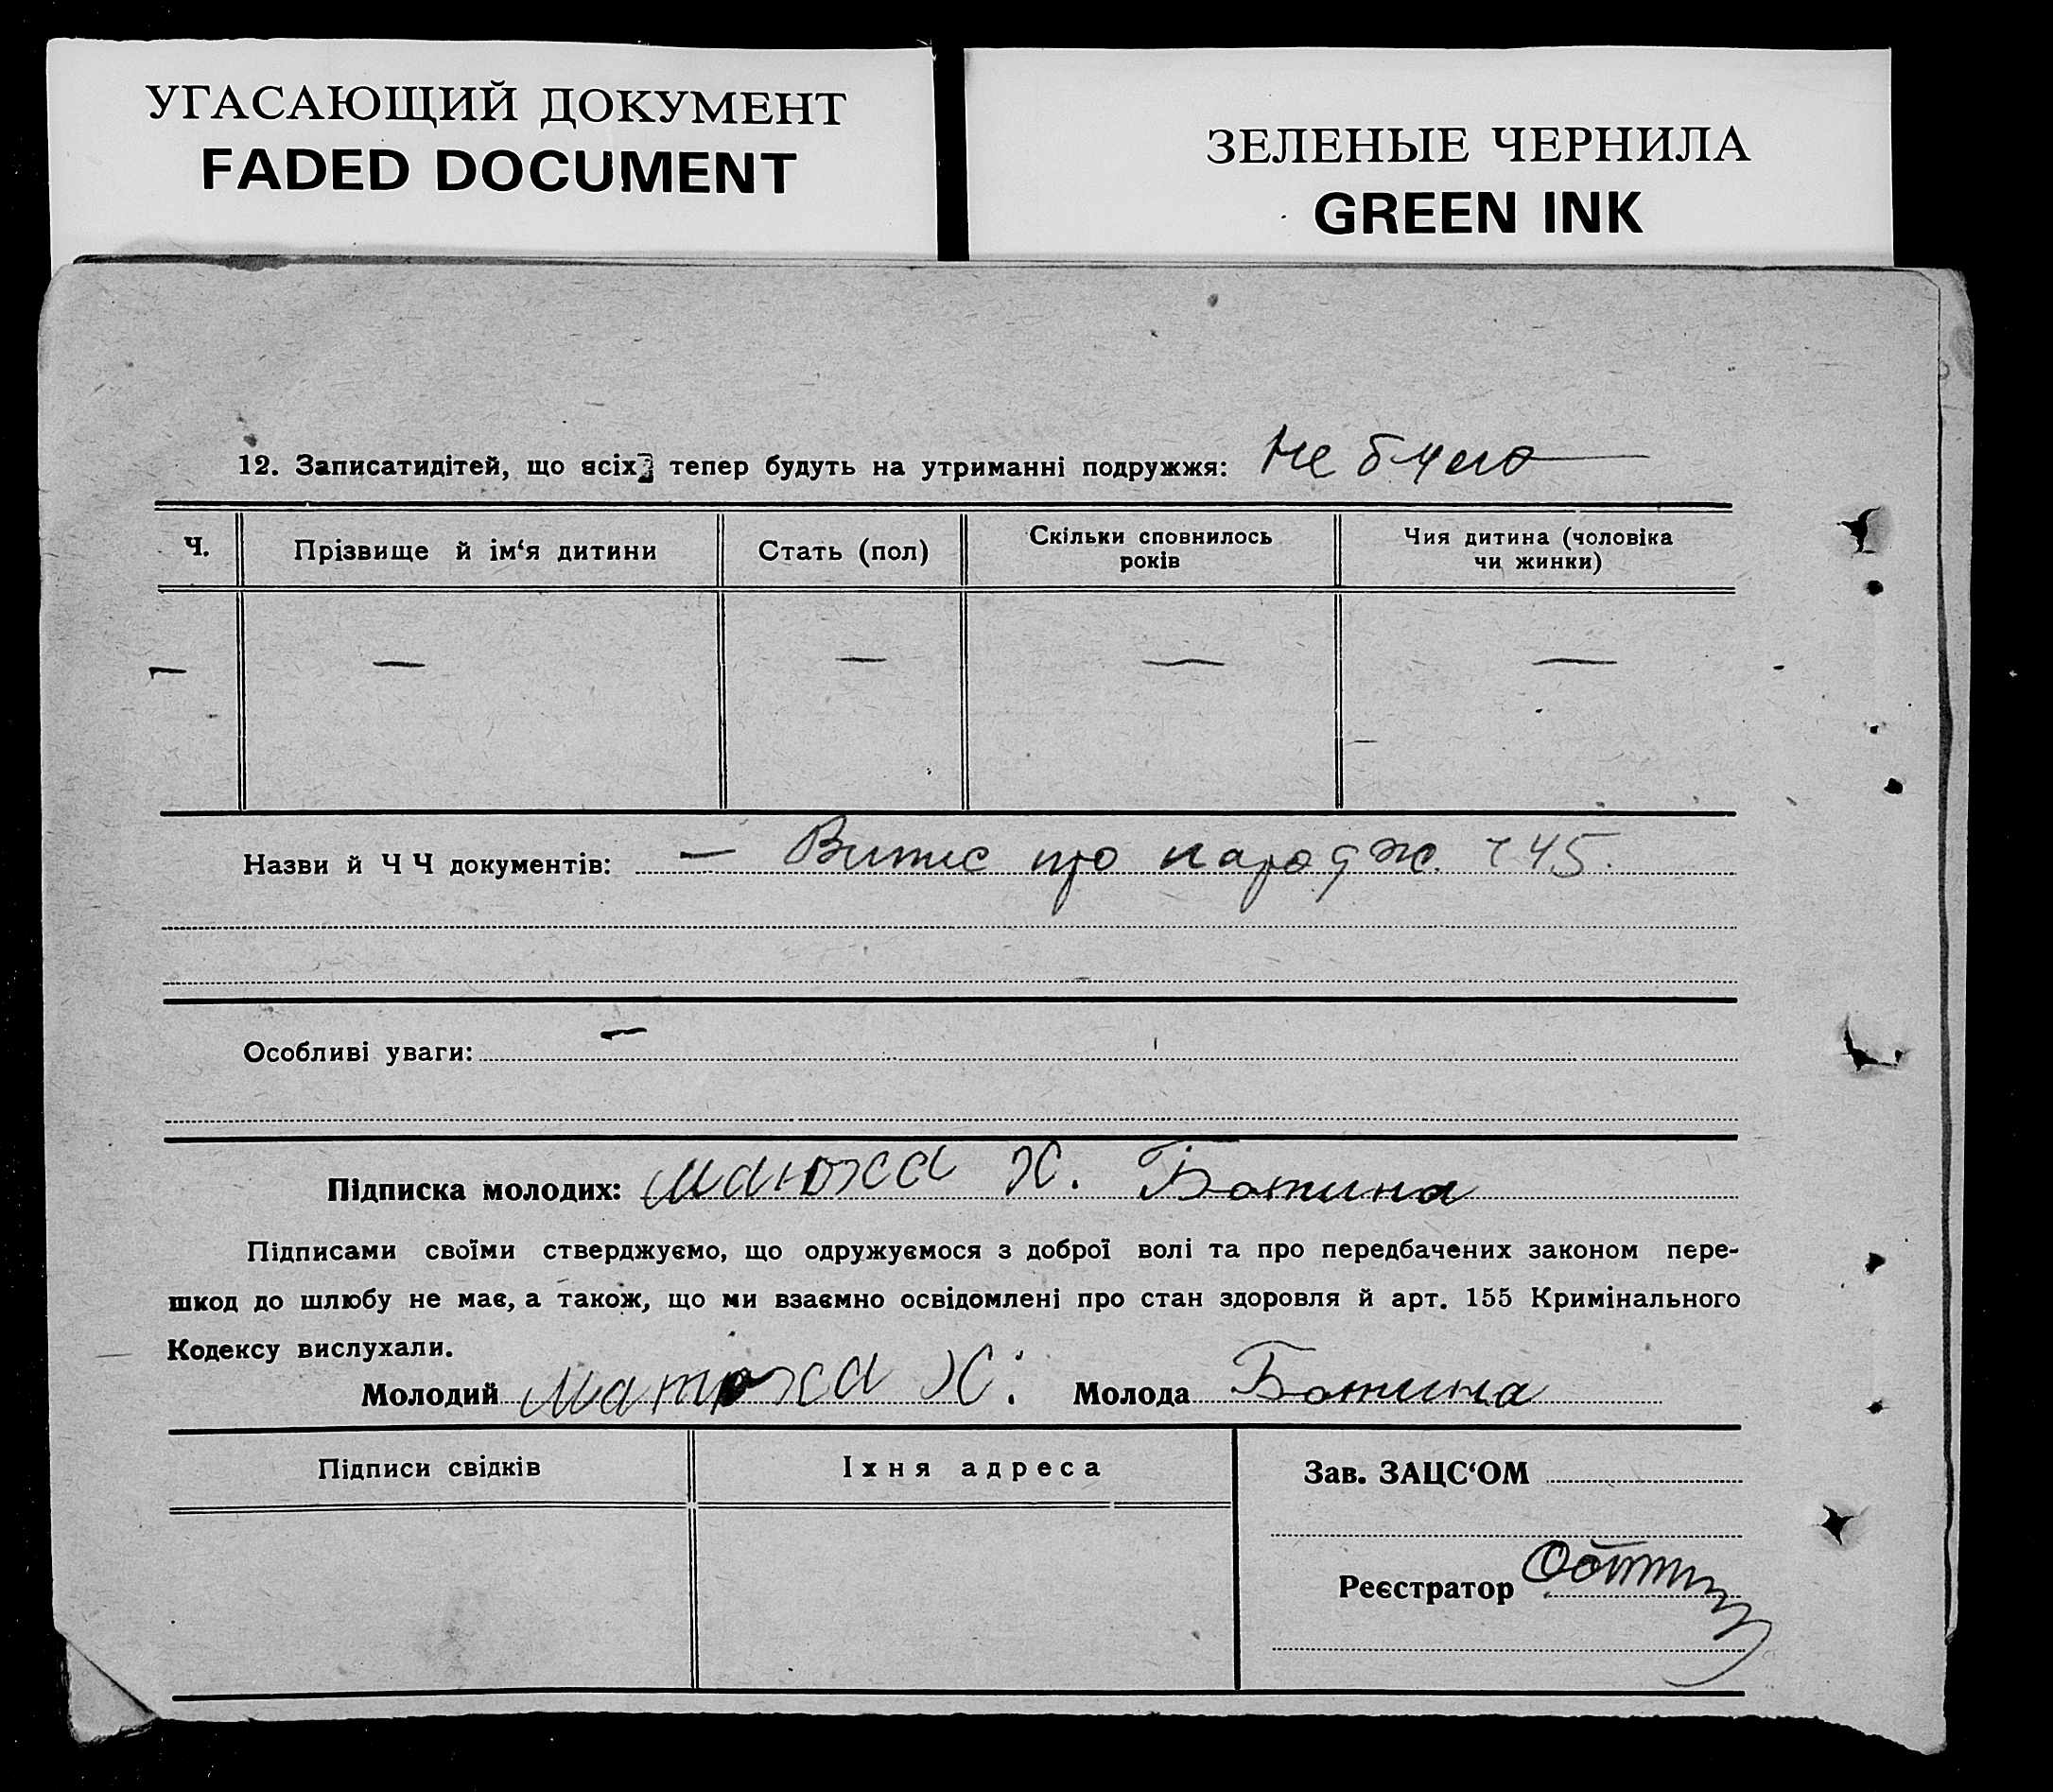 УГАСАЮЩИЙ ДОКУМЕНТ
FADED DOCUMENT
ЗЕЛЕНЫЕ ЧЕРНИЛА
GREEN INK
12. Записатидітей, що всіх тепер будуть на утриманні подружжя: Не було
Ч.
Прізвище й ім‘я дитини
Стать (пол)
Скільки сповнилось
років
Чия дитина (чоловіка
чи жинки)
— — — — —
Назви й Ч Ч документів: — Витис про народж. ч 45.
Особливі уваги: —
Підписка молодих: Х.
Підписами своїми стверджуємо, що одружуємося з доброї волі та про передбачених законом пере-
шкод до шлюбу не має, а також, що ми взаємно освідомлені про стан здоровля й арт. 155 Кримінального
Кодексу вислухали.
Молодий Х. Молода
Підписи свідків
Іхня адреса
Зав. ЗАЦС‘ОМ
Реєстратор